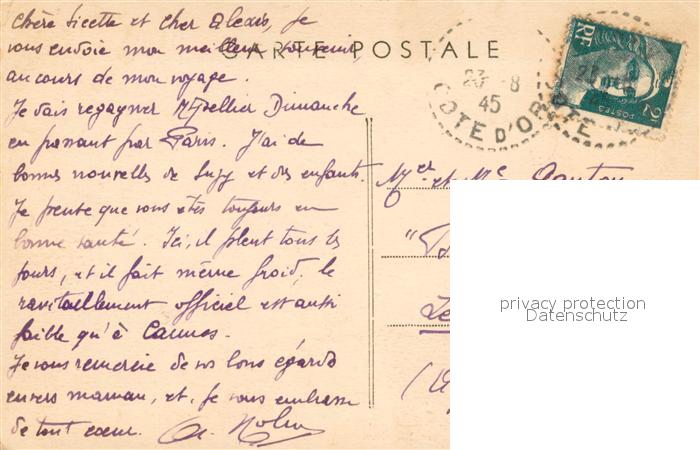 Chère Licette et Cher Alexis, je
vous envoie mon meilleur souvenir
au cours de mon voyage.
Je vais regagner Mtpellier Dimanche
en passant par Paris. J'ai de
bonnes nouvelles de Suzy et des enfants.
Je pense que vous êtes toujours en
bonne santé. Ici, il pleut tous les
jours, et il fait même froid, le
ravitaillement officiel est aussi
faible qu'à Cannes.
Je vous remercie de vos bons égards
envers maman, et, je vous embrasse
de tout cœur.
CARTE POSTALE
23 -8
45
COTE D'OR
RF
2F
POSTES
Mr et Me
privacy protection
Datenschutz